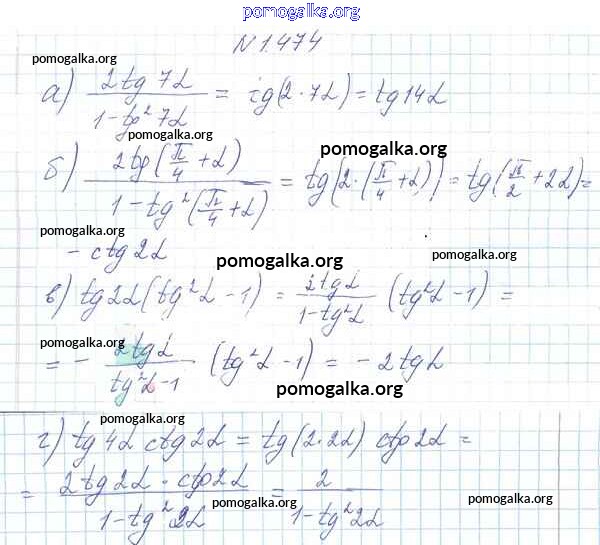 pomogalka.org
N 1.474
pomogalka.org
pomogalka.org
pomogalka.org
а) 2tg 7α / 1-tg² 7α = tg(2·7α) = tg14α
pomogalka.org
pomogalka.org
б) 2tg(π/4 + α) / 1-tg²(π/4 + α) = tg(2·(π/4 + α)) = tg(π/2 + 2α) =
pomogalka.org
pomogalka.org
- ctg2α
pomogalka.org
pomogalka.org
в) tg2α(tg²α - 1) = 2tgα / 1-tg²α (tg²α - 1) =
pomogalka.org
pomogalka.org
= - 2tgα / tg²α-1 (tg²α - 1) = - 2tgα
pomogalka.org
pomogalka.org
pomogalka.org
г) tg4α ctg2α = tg(2·2α) ctg2α =
= 2tg2α · ctg2α / 1-tg²2α = 2 / 1-tg²2α
pomogalka.org
pomogalka.org